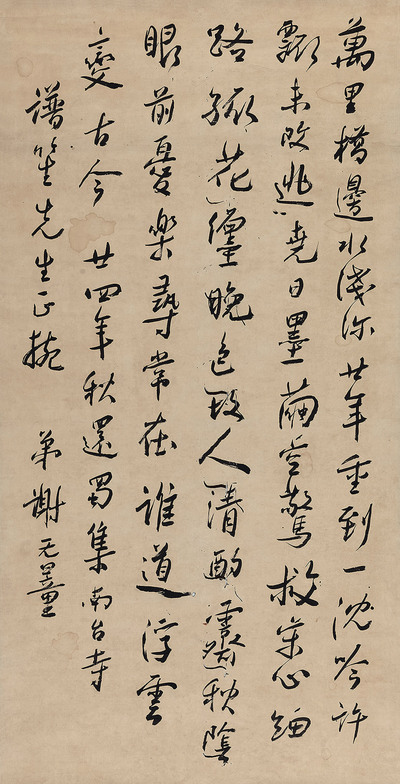 萬里橋邊水淺深廿年重到一沈吟許
瓢未改逃堯日墨繭空驚救宋心細
路緣花晚色故人清酌秋陰
眼前憂樂尋常在誰道浮雲
變古今 廿四年秋還蜀集南台寺
譜笙先生正捥 弟謝无量